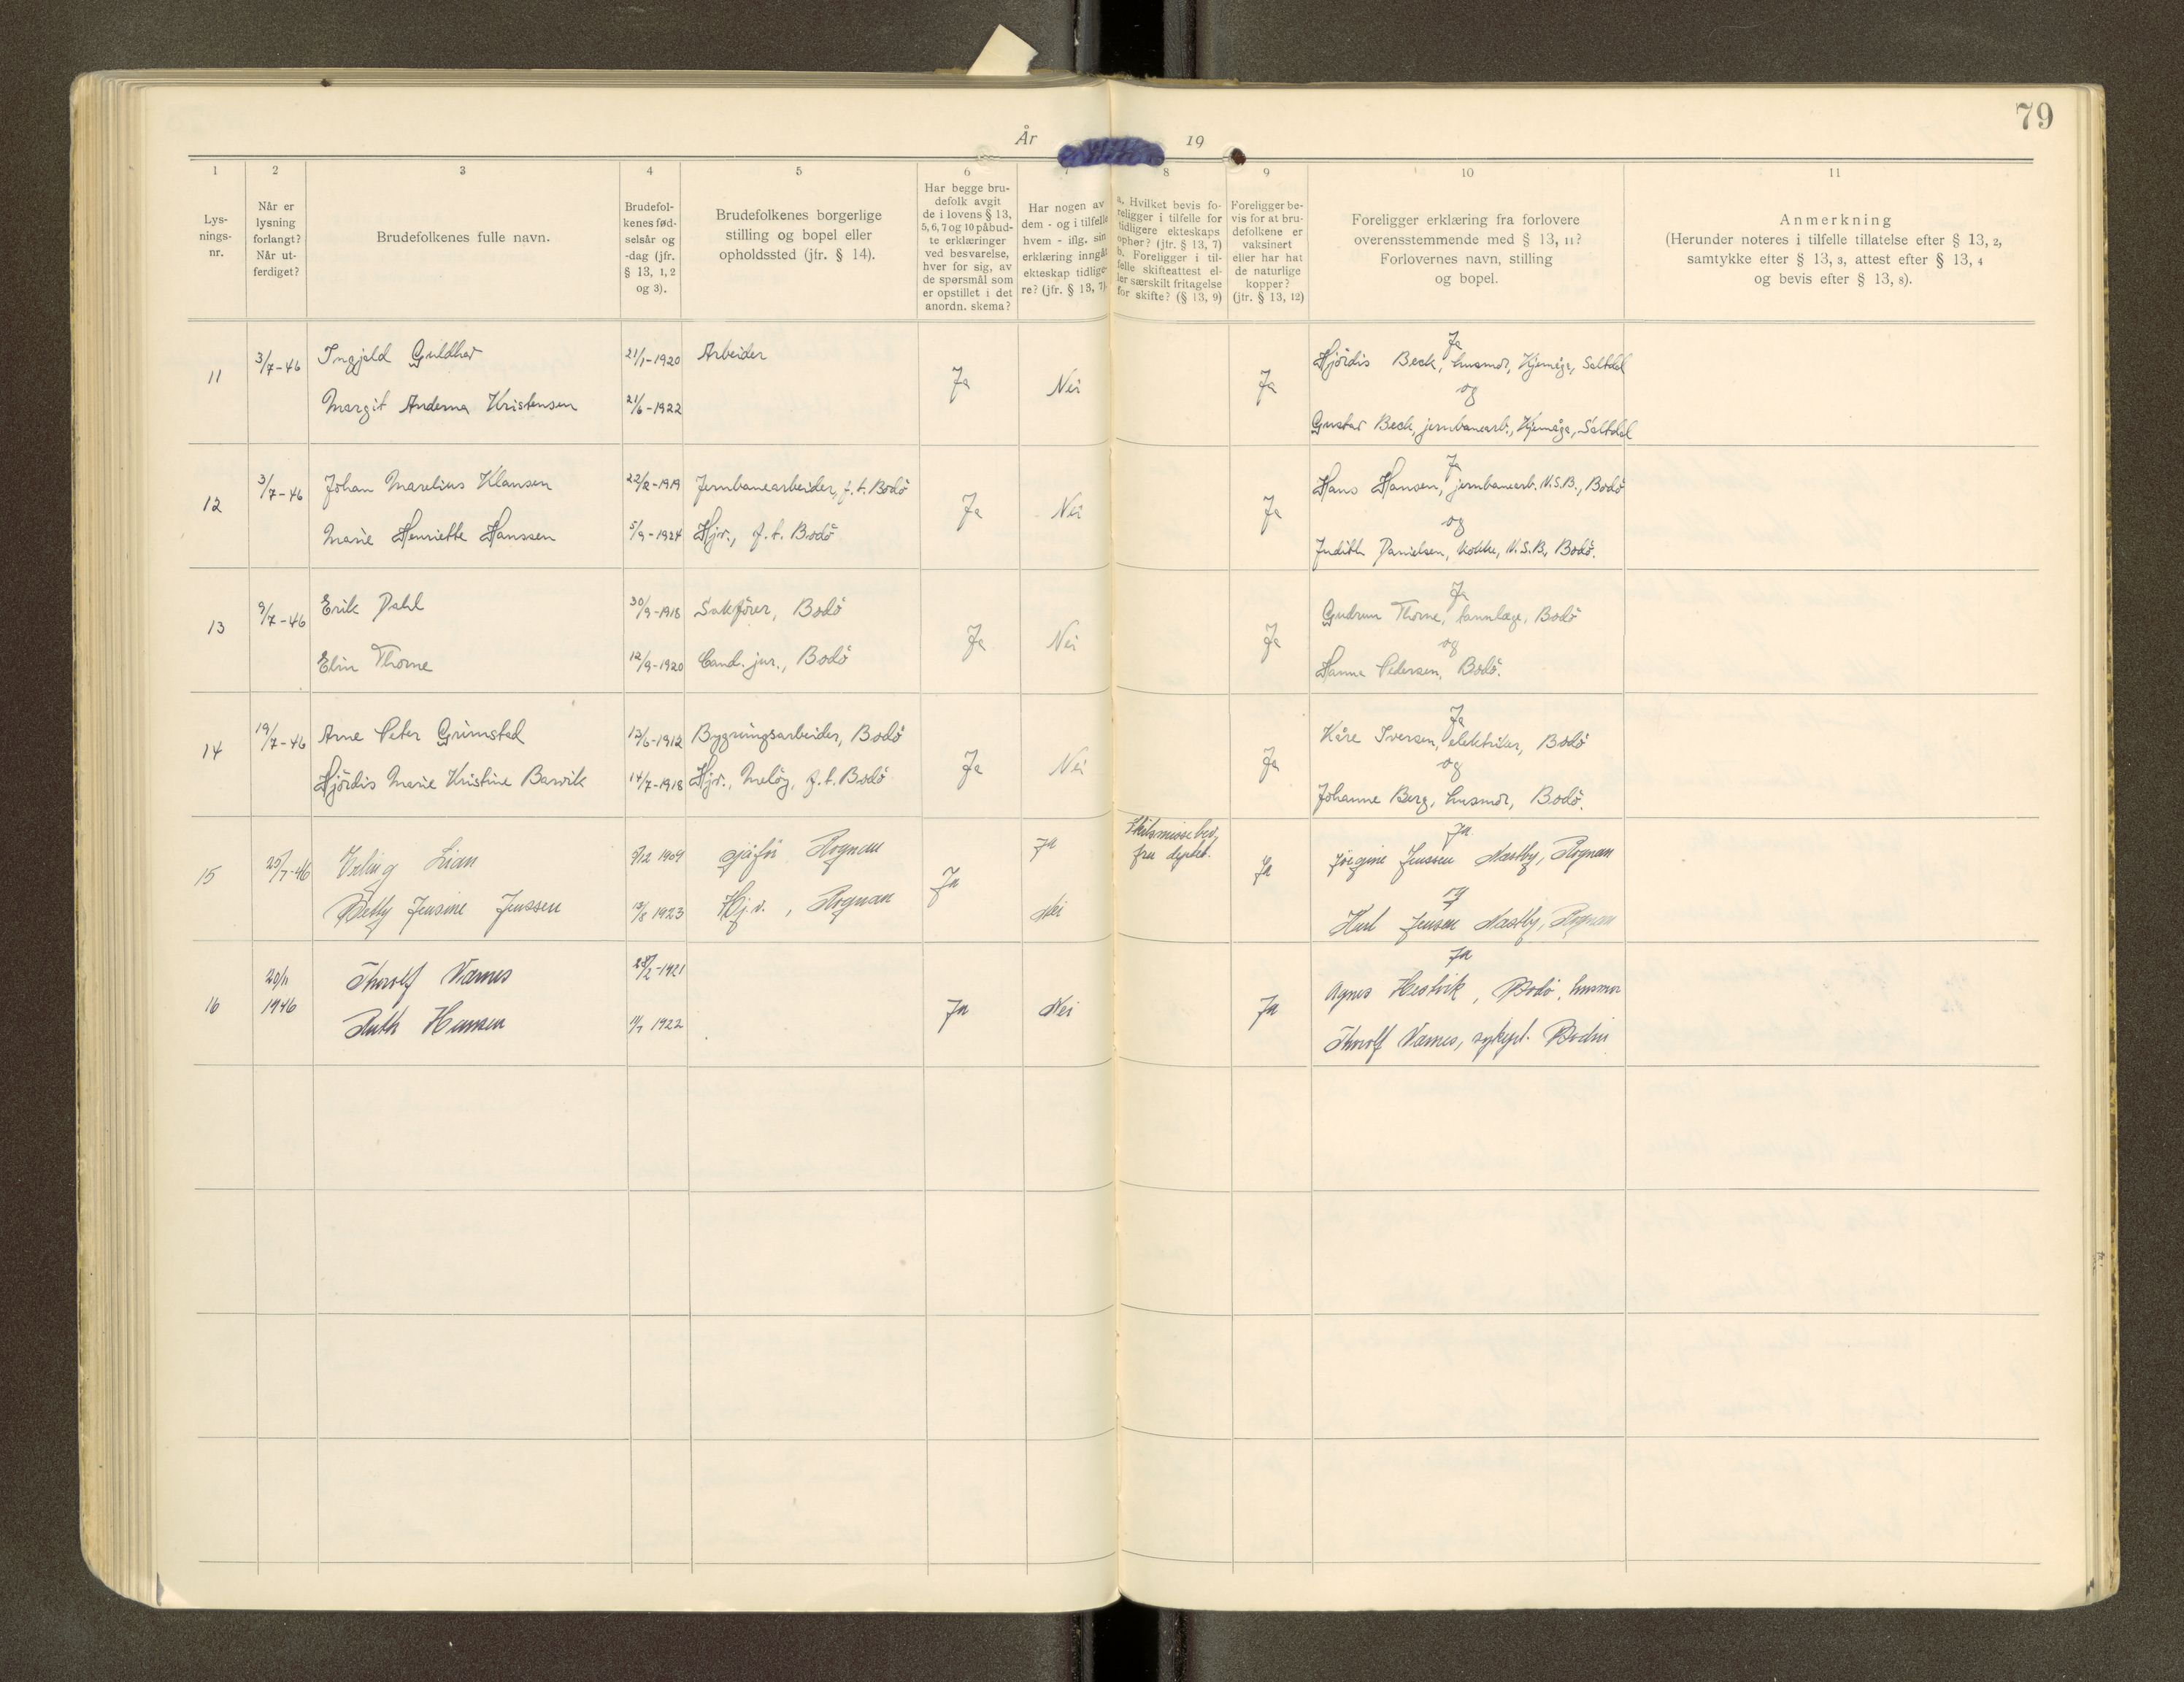 79
År 19
1 2 3 4 5 6 7 8 9 10 11
Lys-
nings-
nr.
Når er
lysning
forlangt?
Når ut-
ferdiget?
Brudefolkenes fulle navn.
Brudefol-
kenes fød-
selsår og
-dag (jfr.
§ 13, 1, 2
og 3).
Brudefolkenes borgerlige
stilling og bopel eller
opholdssted (jfr. § 14).
Har begge bru-
defolk avgit
de i lovens § 13,
5, 6, 7 og 10 påbud-
te erklæringer
ved besvarelse,
hver for sig, av
de spørsmål som
er opstillet i det
anordn. skema?
Har nogen av
dem - og i tilfelle
hvem - iflg. sin
erklæring inngåt
ekteskap tidlige-
re? (jfr. § 13, 7).
a. Hvilket bevis fo-
religger i tilfelle for
tidligere ekteskaps
ophør? (jfr. § 13, 7)
b. Foreligger i til-
felle skifteattest el-
ler særskilt fritagelse
for skifte? (§ 13, 9)
Foreligger be-
vis for at bru-
defolkene er
vaksinert
eller har hat
de naturlige
kopper?
(jfr. § 13, 12)
Foreligger erklæring fra forlovere
overensstemmende med § 13, 11?
Forlovernes navn, stilling
og bopel.
Anmerkning
(Herunder noteres i tilfelle tillatelse efter § 13, 2,
samtykke efter § 13, 3, attest efter § 13, 4
og bevis efter § 13, 8).
11 3/7-46 Ingjald Guldhav 21/1-1920 Arbeider
Margit Anderna Kristensen 21/6-1922
Ja Nei Ja
Ja
Hjördis Beck, husmor, Kjemåga, Saltdal
og
Gustav Beck, jernbanearb., Kjemåga, Saltdal
12 3/7-46 Johan Marelius Klausen 22/2-1919 Jernbanearbeider, f.t. Bodö
Marie Henriette Hanssen 5/9-1924 Hjv., f.t. Bodö
Ja Nei Ja
Ja
Hans Hansen, jernbanearb. N.S.B., Bodö
og
Judith Danielsen, kokke, N.S.B., Bodö.
13 9/7-46 Erik Dahl 30/9-1918 Sakförer, Bodö
Elin Thorne 12/9-1920 Cand. jur., Bodö
Ja Nei Ja
Ja
Gudrun Thorne, tannlæge, Bodö
og
Hanna Pedersen, Bodö.
14 19/7-46 Arne Peter Grimstad 13/6-1912 Bygningsarbeider, Bodö
Hjördis Marie Kristine Barvik 14/7-1918 Hjv., Melöy, f.t. Bodö
Ja Nei Ja
Ja
Kåre Iversen, elektriker, Bodö
og
Johanne Berg, husmor, Bodö.
15 25/7-46 Erling Lian 5/12 1909 sjåför Rognan
Betty Jensine Jenssen 13/8 1923 Hj.v., Rognan
Ja
Ja
Nei
Skilsmisse bev.
Ja
Ja
Jörgine Jenssen Næstby, Rognan
og
Karl Jensen Næstby, Rognan
16 20/11
1946
Thorolf Værnes 28/2-1921
Ruth Hansen 11/7 1922
Ja Nei Ja
Ja
Agnes Hestvik, Bodö, husmor
Thorolf Værnes, sykepl. Bodin